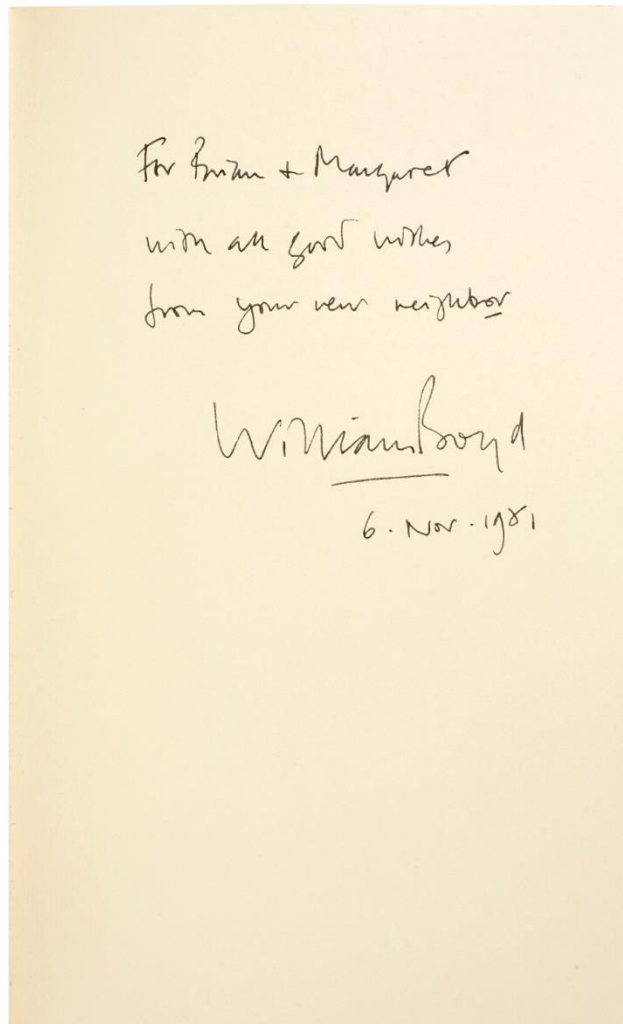 For Brian + Margaret
with all good wishes
from your new neighbor
William Boyd
6. Nov. 1981